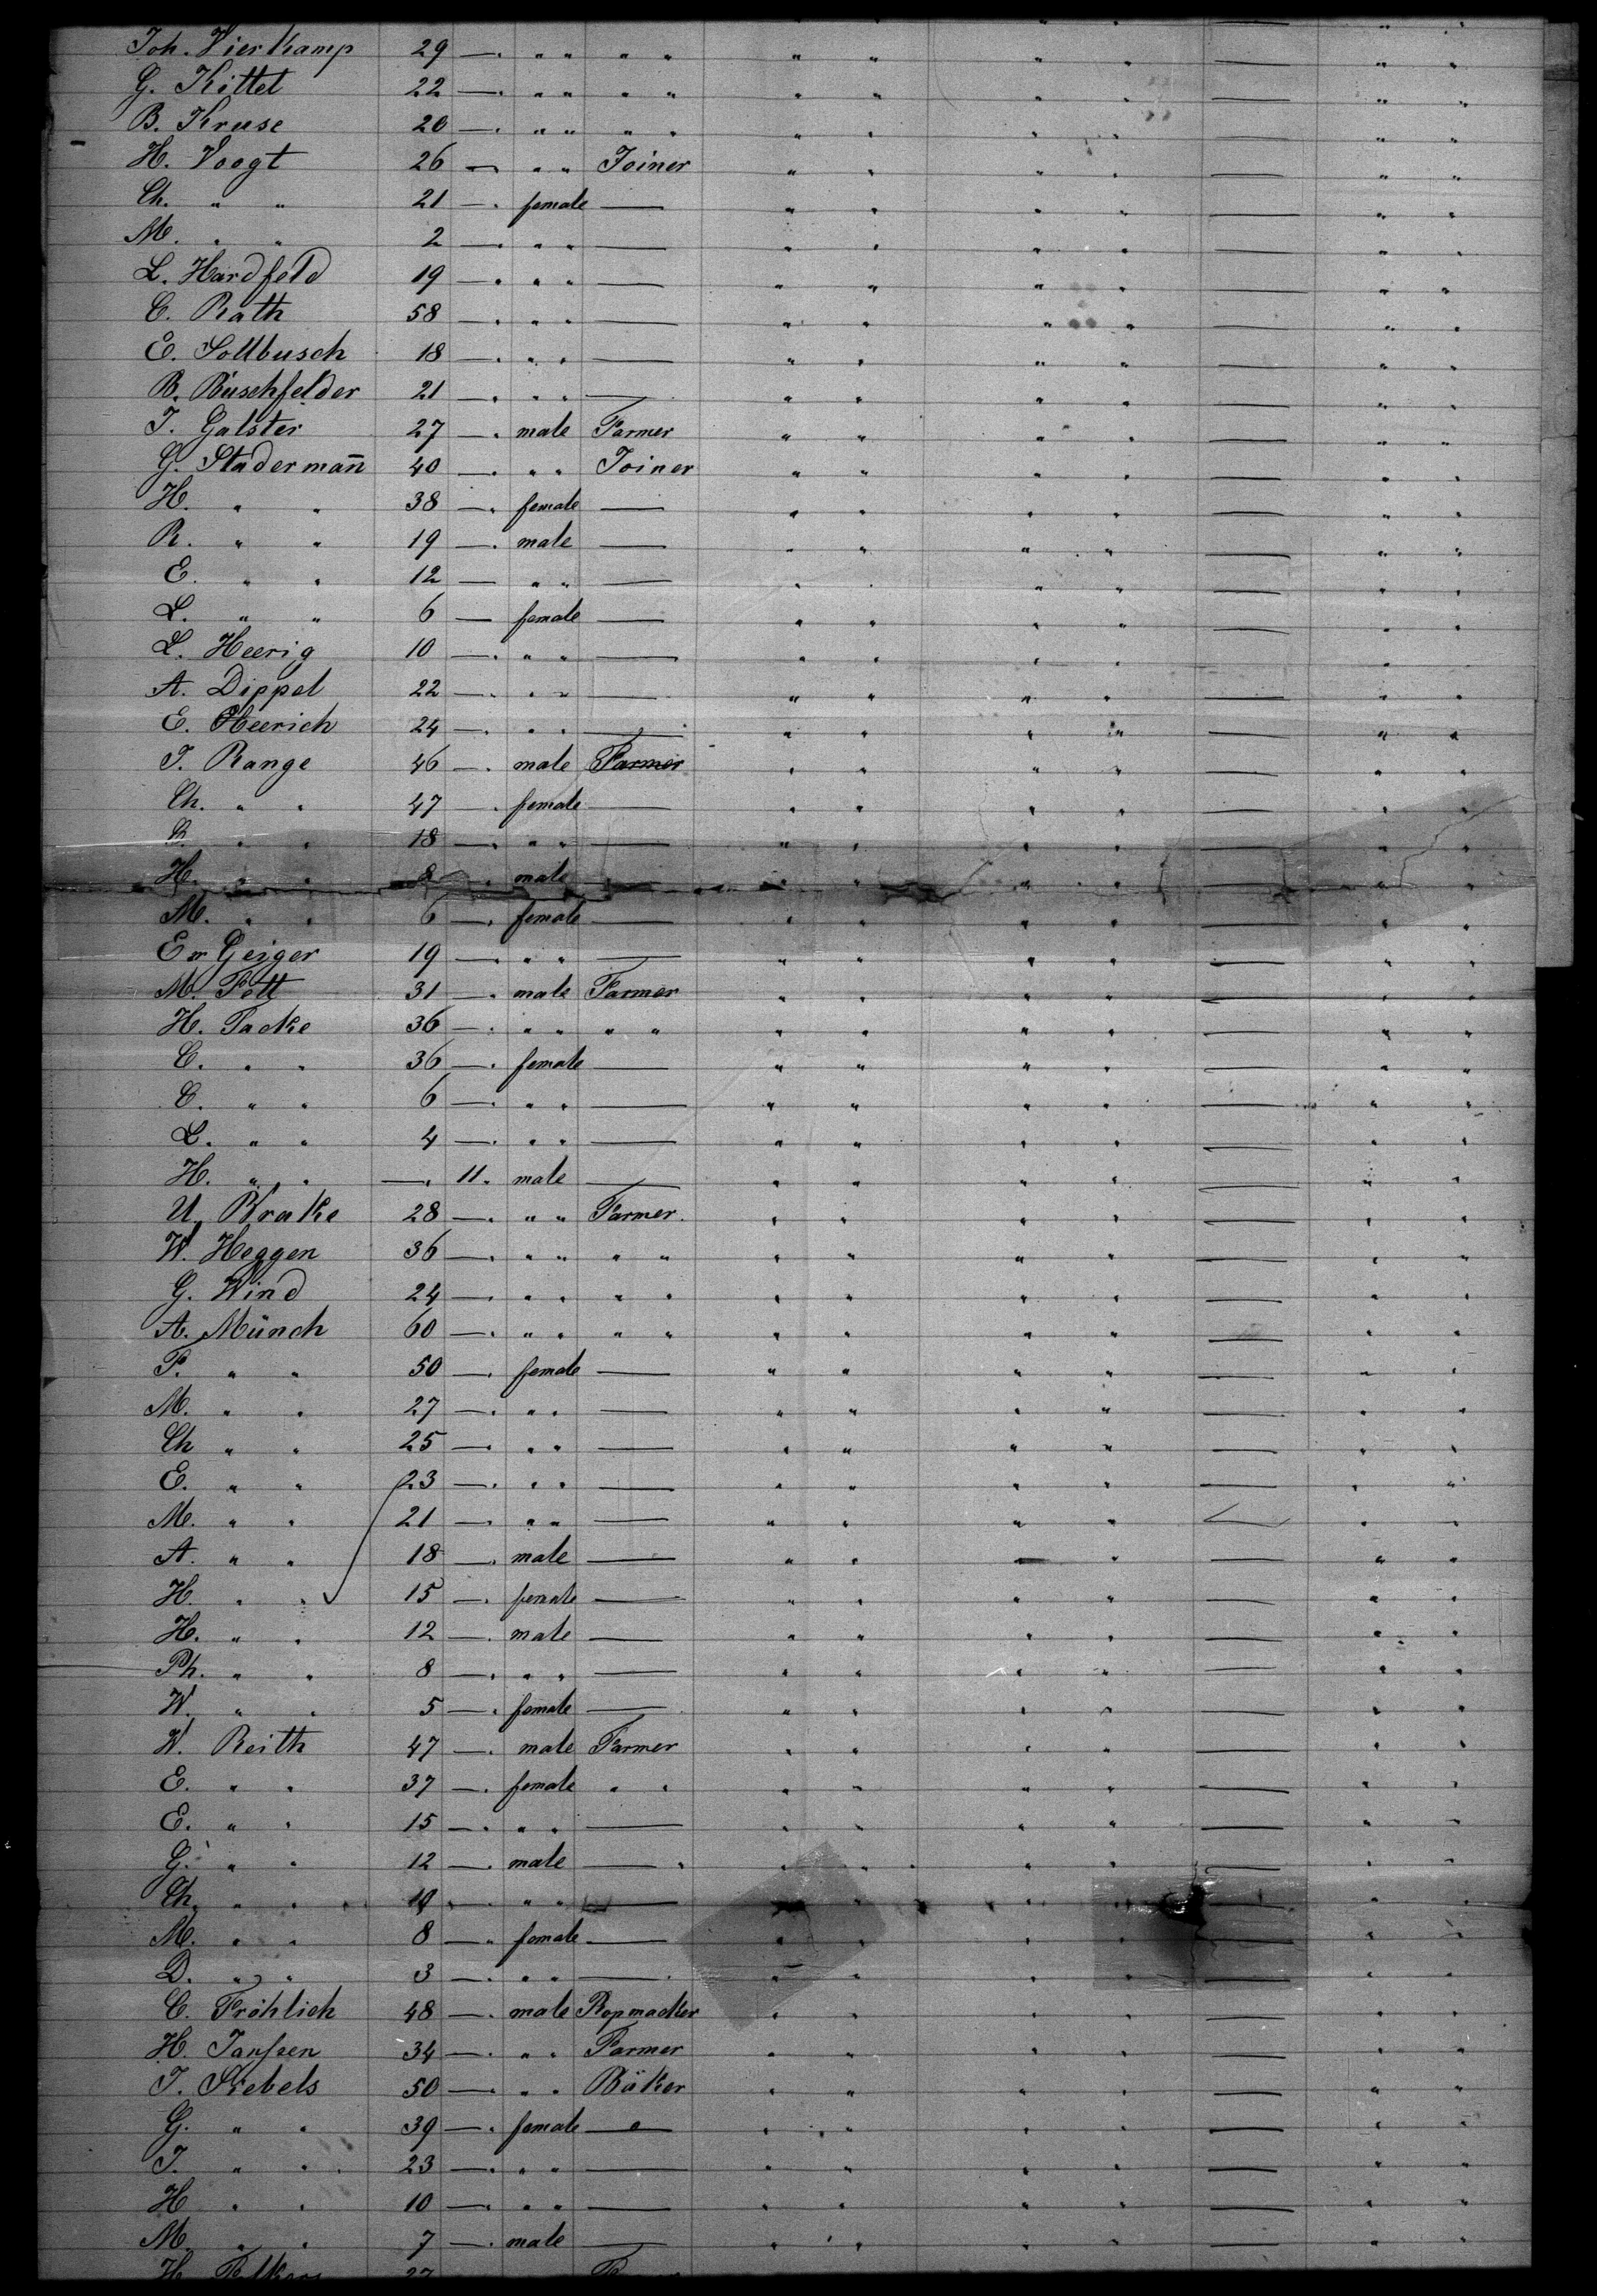 Joh. Vierkamp 29 —. " " " " " " " " — " "
G. Kittel 22 —. " " " " " " " " — " "
B. Kruse 20 —. " " " " " " " " — " "
H. Voogt 26 —. " " Joiner " " " " — " "
Ch. " " 21 —. female — " " " " — " "
M. " " 2 —. " " — " " " " — " "
L. Hardfeld 19 —. " " — " " " " — " "
C. Rath 58 —. " " — " " " " — " "
E. Sollbusch 18 —. " " — " " " " — " "
B. Buschfelder 21 —. " " — " " " " — " "
J. Galster 27 —. male Farmer " " " " — " "
G. Stadermañ 40 —. " " Joiner " " " " — " "
H. " " 38 —. female — " " " " — " "
R. " " 19 —. male — " " " " — " "
E. " " 12 — " " — " " " " — " "
L. " " 6 — female — " " " " — " "
L. Heerig 10 —. " " — " " " " — " "
A. Dippel 22 —. " " — " " " " — " "
E. Heerich 24 —. " " — " " " " — " "
J. Range 46 —. male Farmer " " " " — " "
Ch. " " 47 —. female — " " " " — " "
" " 18 —. " " — " " " " — " "
H. " " 8 —. male — " " " " — " "
M. " " 6 —. female — " " " " — " "
Geiger 19 —. " " — " " " " — " "
M. Fett 31 —. male Farmer " " " " — " "
H. Tacke 36 —. " " " " " " " " — " "
C. " " 36 —. female — " " " " — " "
C. " " 6 —. " " — " " " " — " "
L. " " 4 —. " " — " " " " — " "
H. " " —. 11. male — " " " " — " "
U. Krake 28 —. " " Farmer. " " " " — " "
W. Heggen 36 —. " " " " " " " " — " "
G. Wind 24 —. " " " " " " " " — " "
A. Münch 60 —. " " " " " " " " — " "
F. " " 50 —. female — " " " " — " "
M. " " 27 —. " " — " " " " — " "
Ch " " 25 —. " " — " " " " — " "
E. " " 23 —. " " — " " " " — " "
M. " " 21 —. " " — " " " " — " "
A. " " 18 —. male — " " " " — " "
H. " " 15 —. female — " " " " — " "
H. " " 12 —. male — " " " " — " "
Ph. " " 8 —. " " — " " " " — " "
W. " " 5 —. female — " " " " — " "
W. Reith 47 —. male Farmer " " " " — " "
E. " " 37 —. female " " " " " " — " "
E. " " 15 —. " " — " " " " — " "
G. " " 12 —. male — " " " " — " "
Ch. " " 10 —. " " — " " " " — " "
M. " " 8 —. female — " " " " — " "
D. " " 3 —. " " — " " " " — " "
C. Fröhlich 48 —. male Ropmacker " " " " — " "
H. Janssen 34 —. " " Farmer " " " " — " "
J. Siebels 50 —. " " Bäker " " " " — " "
G. " " 39 —. female — " " " " — " "
J. " " 23 —. " " — " " " " — " "
H " " 10 —. " " — " " " " — " "
M. " " 7 —. male — " " " " — " "
H. 27